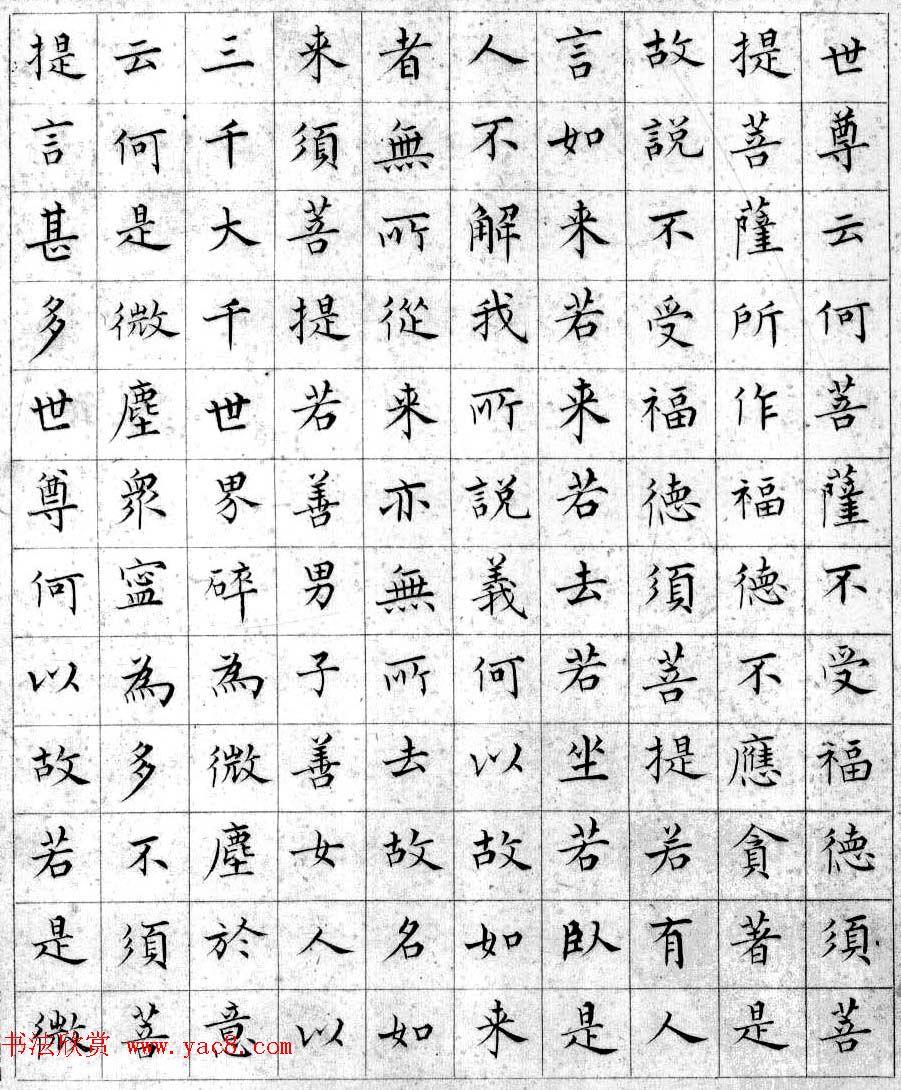 世尊云何菩薩不受福德須菩
提菩薩所作福德不應貪著是
故説不受福德須菩提若有人
言如来若来若去若坐若臥是
人不解我所説義何以故如来
者無所從来亦無所去故名如
来須菩提若善男子善女人以
三千大千世界碎為微塵於意
云何是微塵衆寍為多不須菩
提言甚多世尊何以故若是微
书法欣赏 www.yac8.com